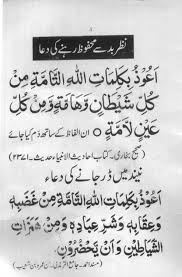 ۸
نظرِ بد سے محفوظ رہنے کی دعا
اَعُوْذُ بِكَلِمَاتِ اللّٰهِ التَّامَّةِ مِنْ
كُلِّ شَيْطَانٍ وَّهَامَّةٍ وَّمِنْ كُلِّ
عَيْنٍ لَامَّةٍ ○ ان الفاظ کے ساتھ دَم کیا جائے
(صحیح بخاری۔ کتاب احادیث الانبیاء حدیث۔ ۳۳۷۱)
نیند میں ڈر جانے کی دعاء
اَعُوْذُ بِكَلِمَاتِ اللّٰهِ التَّامَّةِ مِنْ غَضَبِهٖ
وَعِقَابِهٖ وَشَرِّ عِبَادِهٖ وَمِنْ هَمَزَاتِ
الشَّيَاطِيْنِ وَاَنْ يَّحْضُرُوْنِ